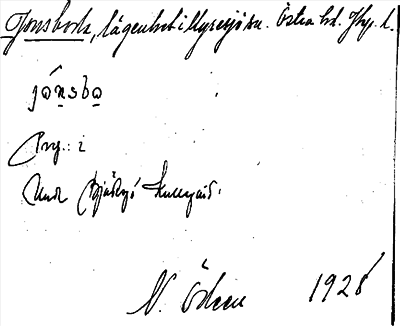 Jonsboda, lägenhet i Myresjö sn. Östra hd. Jkp. l.
jónsbo
Prg.: i
Under Bjädesjö Kullegård.
N. Ödeen 1928